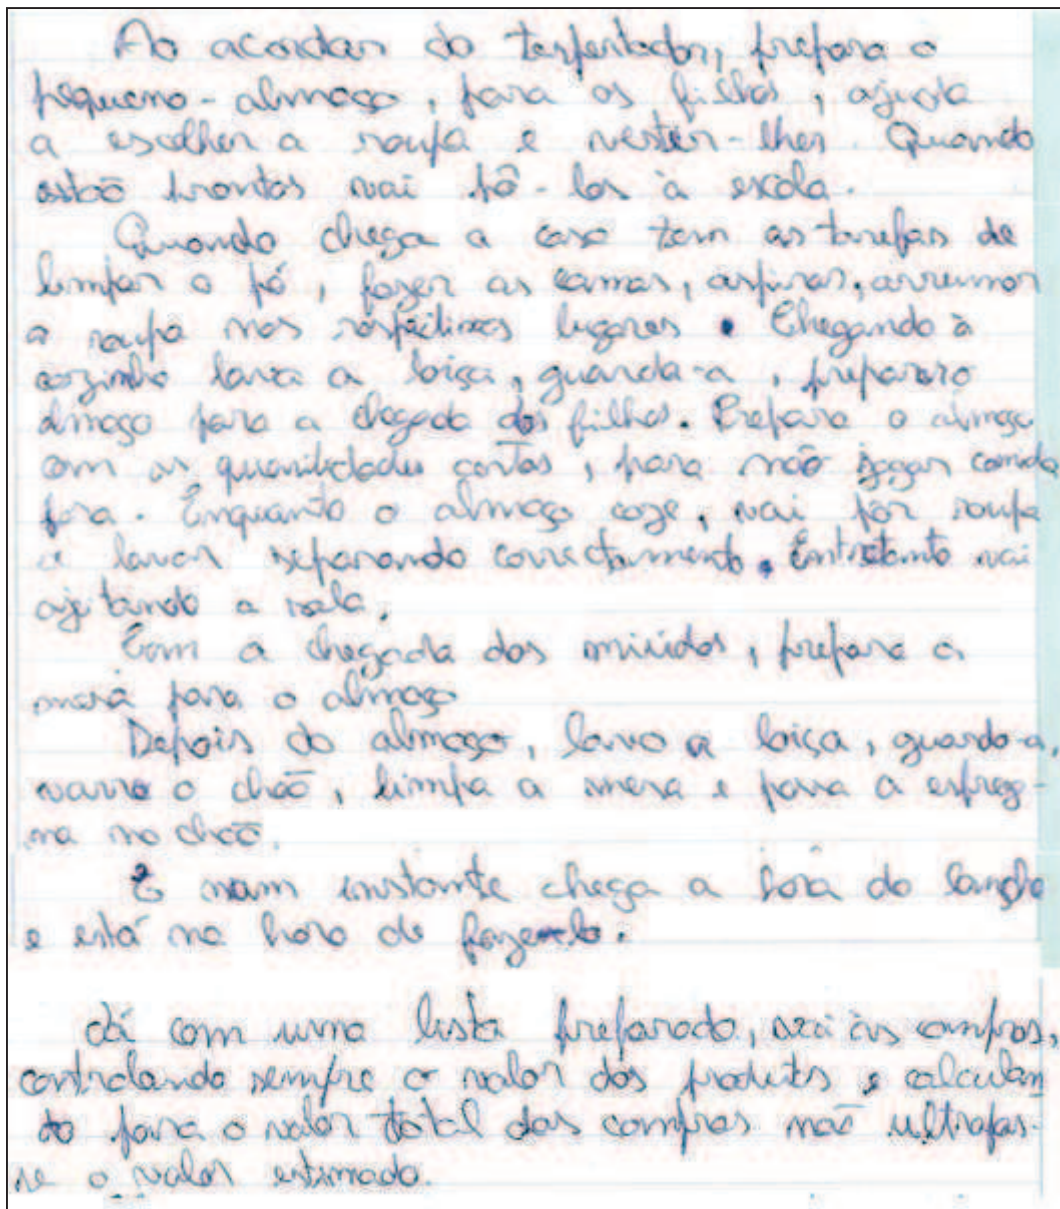 Ao acordar do despertador, prepara o
pequeno-almoço, para os filhos, ajuda
a escolher a roupa e vester-lhes. Quando
estão prontos vai pô-los à escola.
Quando chega a casa tem as tarefas de
limpar o pó, fazer as camas, aspirar, arrumar
a roupa nos respectivos lugares. Chegando à
cozinha lava a loiça, guarda-a, prepara o
almoço para a chegada dos filhos. Prepara o almoço
com as quantidades certas, para não jogar comida
fora. Enquanto o almoço coze, vai pôr roupa
a lavar separando correctamente. Entretanto vai
ajeitando a sala.
Com a chegada dos miúdos, prepara a
mesa para o almoço
Depois do almoço, lava a loiça, guarda-a,
varre o chão, limpa a mesa e passa a esfreg-
na no chão.
E num instante chega a hora do lanche
e está na hora de faze-lo.
Já com uma lista preparada, vai às compras,
controlando sempre o valor dos produtos e calculan
do para o valor total das compras não ultrapas-
se o valor estimado.